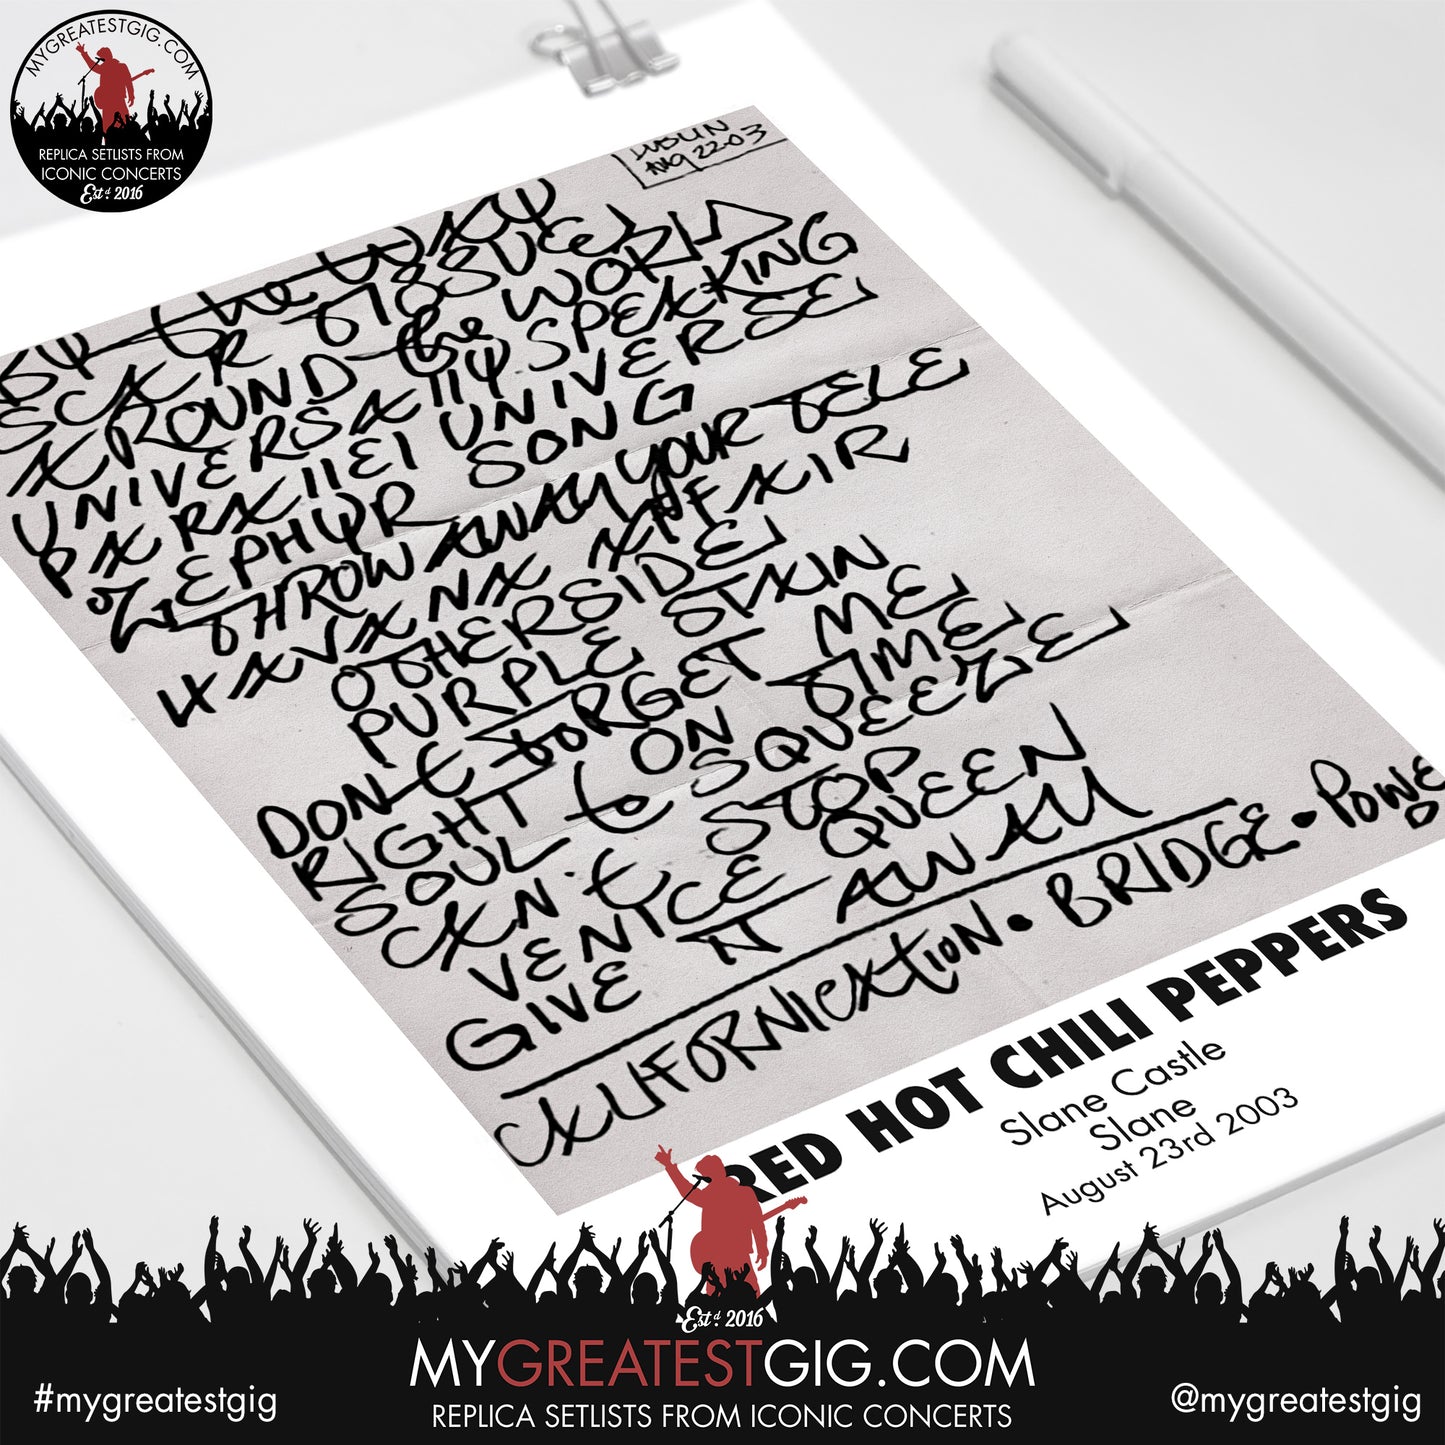 MYGREATESTGIG.COM
REPLICA SETLISTS FROM
ICONIC CONCERTS
Estd. 2016
DUBLIN
AUG 22-03
BY the WAY
SCAR TISSUE
AROUND the WORLD
UNIVERSALLY SPEAKING
PARALLEL UNIVERSE
ZEPHYR SONG
THROW AWAY YOUR TELE
HAVANA AFFAIR
OTHERSIDE
PURPLE STAIN
DON'T FORGET ME
RIGHT ON TIME
SOUL to SQUEEZE
CAN'T STOP
VENICE QUEEN
GIVE IT AWAY
CALIFORNICATION • BRIDGE • POWE
RED HOT CHILI PEPPERS
Slane Castle
Slane
August 23rd 2003
Estd. 2016
MYGREATESTGIG.COM
#mygreatestgig
REPLICA SETLISTS FROM ICONIC CONCERTS
@mygreatestgig